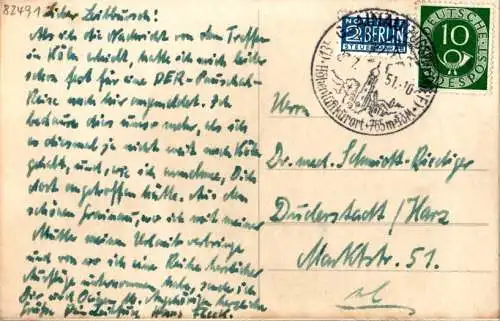 82491
Lieber Leibbursch!
Als ich die Nachricht von dem Treffen
in Köln erhielt, hatte ich mich leider
schon fest für eine DER-Pauschal-
Reise nach hier angemeldet. Ich
bedaure dies umso mehr, als ich
es diesmal ja nicht weit nach Köln
gehabt, und, wie ich annehme, Dich
dort angetroffen hätte. Aus dem
schönen, wo ich mit meiner
Mutter meinen Urlaub verbringe
und von wo ich eine Reihe herrlicher
Ausflüge unternommen habe, sende ich
Dir und Deinen Angehörigen herzliche
Grüße Dein Leibfux Hans
NOTOPFER
2 BERLIN
STEUERMARKE
Höhenluftkurort 765 m
51.-16
DEUTSCHE BUNDESPOST
10
Herrn
Dr. med. Schmidt-Riediger
Duderstadt/Harz
Marktstr. 51.